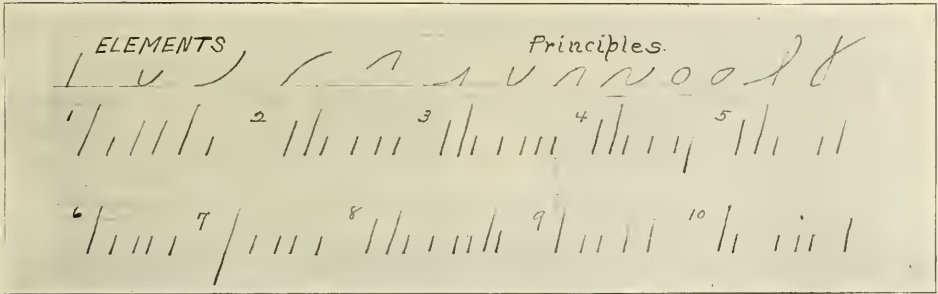 ELEMENTS Principles.
1 2 3 4 5
6 7 8 9 10